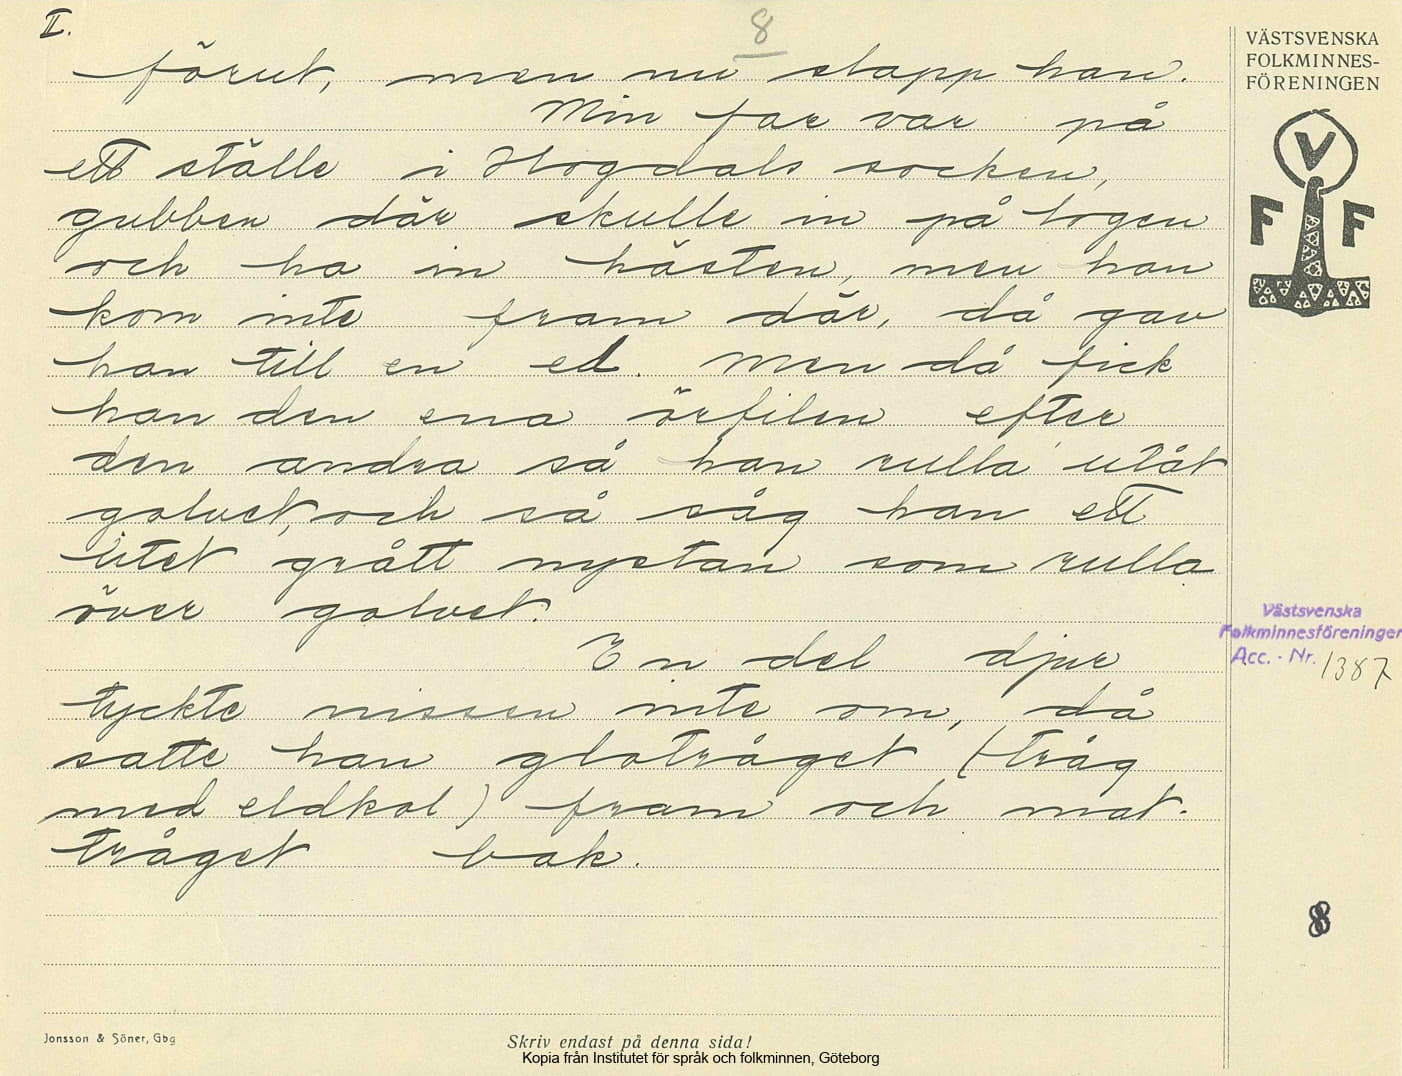 II.
8
förut, men nu slapp han.
Min far var på
ett ställe i Hogdals socken,
gubben där skulle in på logen
och ha in hästen, men han
kom inte fram där, då gav
han till en ed. Men då fick
han den ena örfilen efter
den andra så han rulla utåt
golvet, och så såg han ett
litet grått nystan som rulla
över golvet.
En del djur
tyckte nissen inte om, då
satte han glotråget (tråg
med eldkol) fram och mat-
tråget bak.
VÄSTSVENSKA
FOLKMINNES-
FÖRENINGEN
V
F F
Västsvenska
Folkminnesföreningen
Acc. - Nr. 1387
8
Jonsson & Söner, Gbg
Skriv endast på denna sida!
Kopia från Institutet för språk och folkminnen, Göteborg